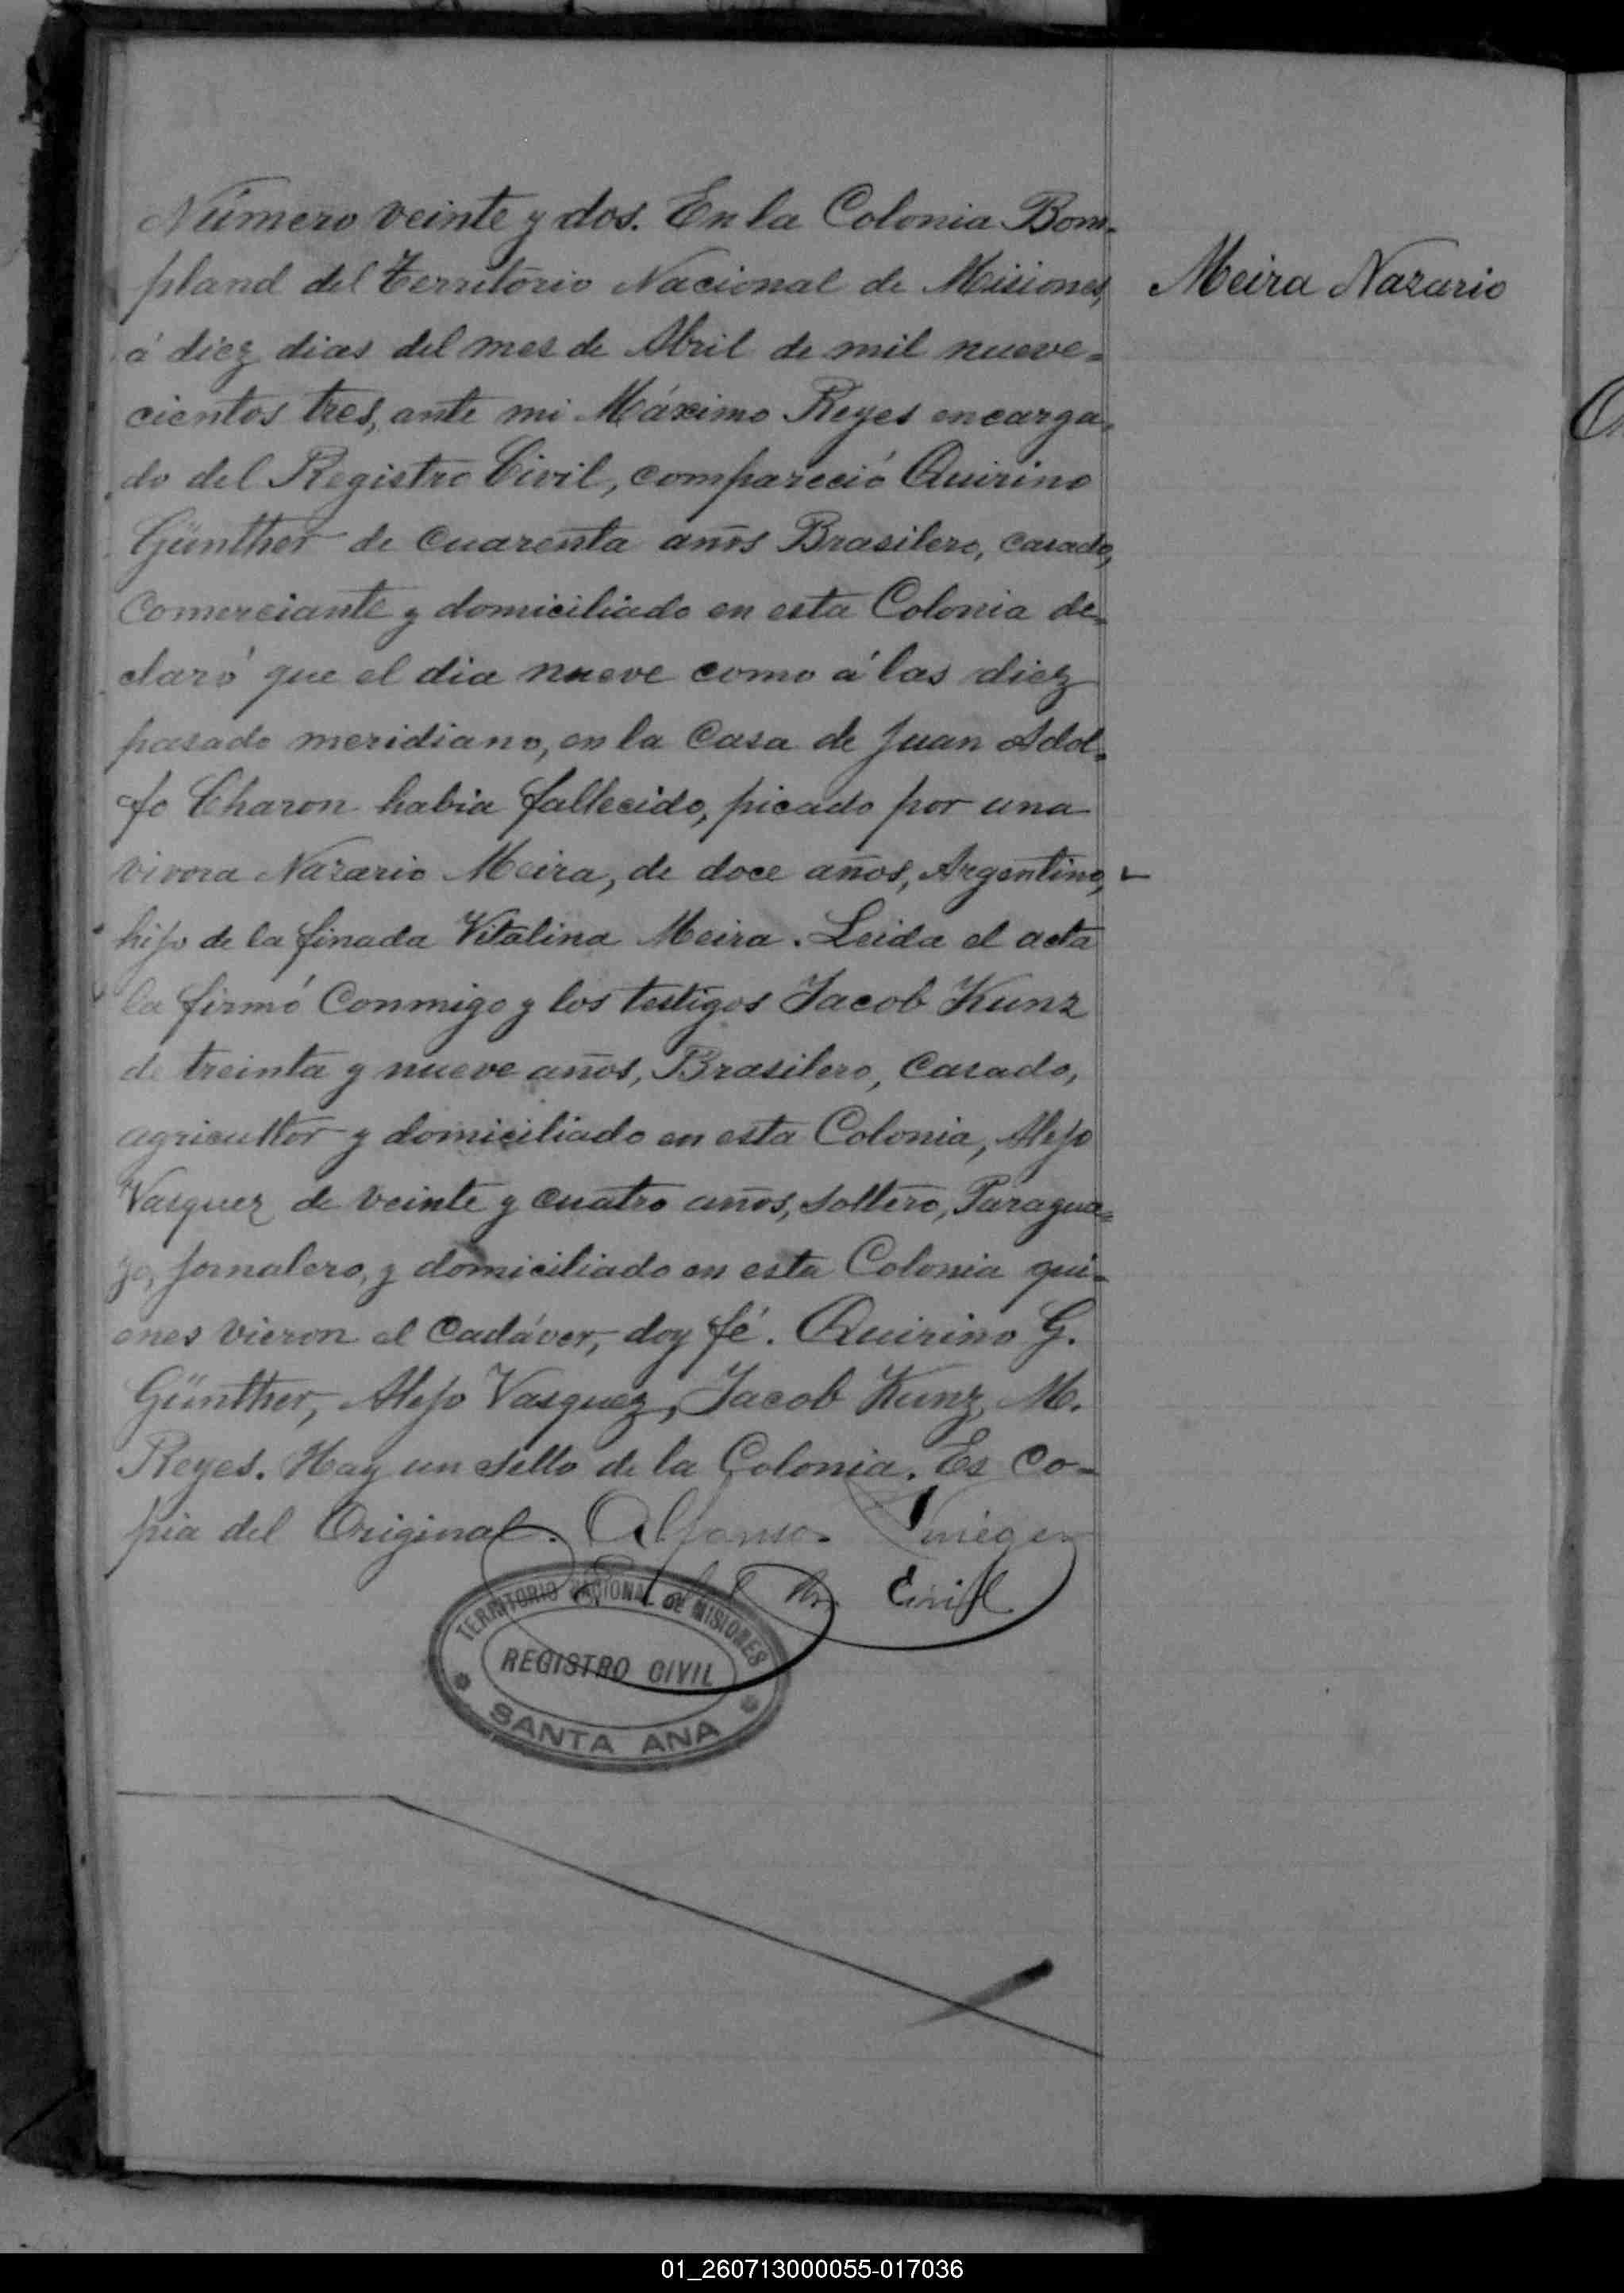 Número veinte y dos. En la Colonia Bom-
pland del Territorio Nacional de Misiones,
á diez dias del mes de Abril de mil nueve=
cientos tres, ante mi Máximo Reyes encarga-
do del Registro Civil, compareció Quirino
Günther de cuarenta años Brasilero, casado,
Comerciante y domiciliado en esta Colonia de-
claró que el dia nueve como á las diez
pasado meridiano, en la Casa de Juan Adol-
fo Charon habia fallecido, picado por una
vivora Nazario Meira, de doce años, Argentino,
hijo de la finada Vitalina Meira. Leida el acta
la firmó Conmigo y los testigos Jacob Kunz
de treinta y nueve años, Brasilero, Casado,
agricultor y domiciliado en esta Colonia, Alejo
Vasquez de veinte y cuatro años, soltero, Paragua=
yo, jornalero, y domiciliado en esta Colonia qui-
enes vieron el Cadáver, doy fé. Quirino G.
Günther, Alejo Vasquez, Jacob Kunz, M.
Reyes. Hay un sello de la Colonia. Es Co-
pia del Original. Alfonso
Civil
TERRITORIO NACIONAL DE MISIONES
REGISTRO CIVIL
SANTA ANA
Meira Nazario
01_260713000055-017036